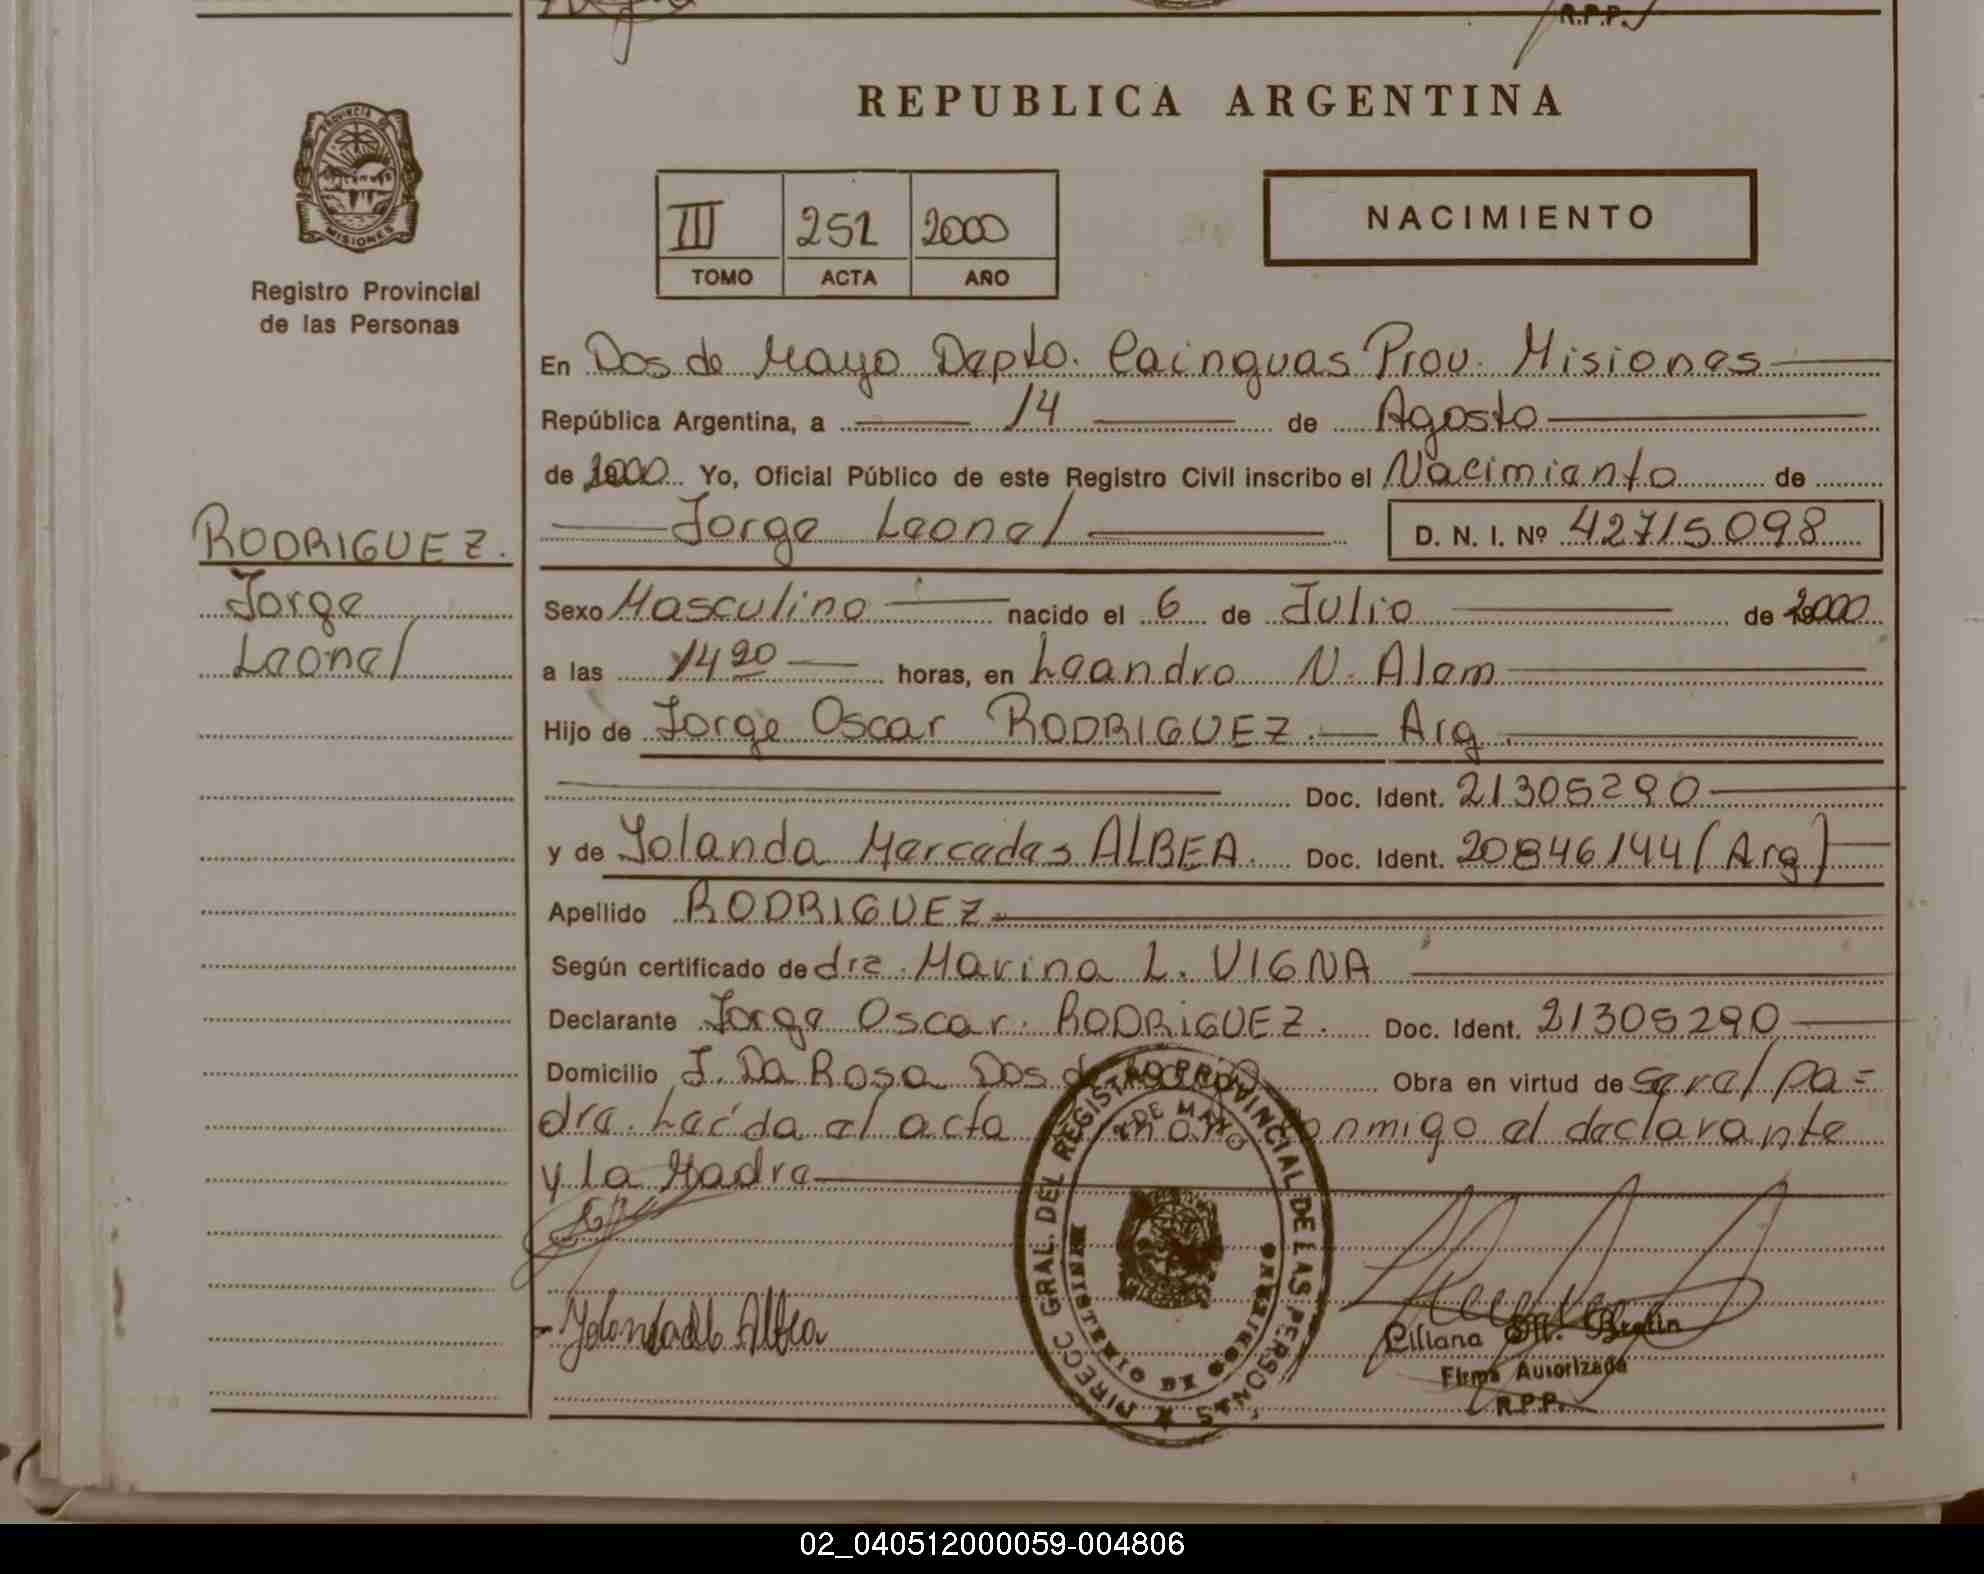 R.P.P.
PROVINCIA DE
MISIONES
Registro Provincial
de las Personas
REPUBLICA ARGENTINA
III 251 2000
TOMO ACTA AÑO
NACIMIENTO
En Dos de Mayo Depto. Cainguas Prov. Misiones
República Argentina, a 14 de Agosto
de 2000 Yo, Oficial Público de este Registro Civil inscribo el Nacimiento de
Jorge Leonel D. N. I. Nº 42715098
RODRIGUEZ.
Jorge
Leonel
Sexo Masculino nacido el 6 de Julio de 2000
a las 14 20 horas, en Leandro N. Alem
Hijo de Jorge Oscar RODRIGUEZ. Arg.
Doc. Ident. 21305290
y de Yolanda Mercedes ALBEA. Doc. Ident. 20846144 (Arg)
Apellido RODRIGUEZ
Según certificado de dra. Marina L. VIGNA
Declarante Jorge Oscar RODRIGUEZ. Doc. Ident. 21305290
Domicilio J. Da Rosa Dos de Mayo Obra en virtud de ser el pa=
dre. Leída el acta conmigo el declarante
y la Madre
DIRECC GRAL. DEL REGISTRO PROVINCIAL DE LAS PERSONAS
2 DE MAYO
MINISTERIO DE GOBIERNO
Yolanda Albea
Liliana M. Bratin
Firma Autorizada
R.P.P.
02_040512000059-004806